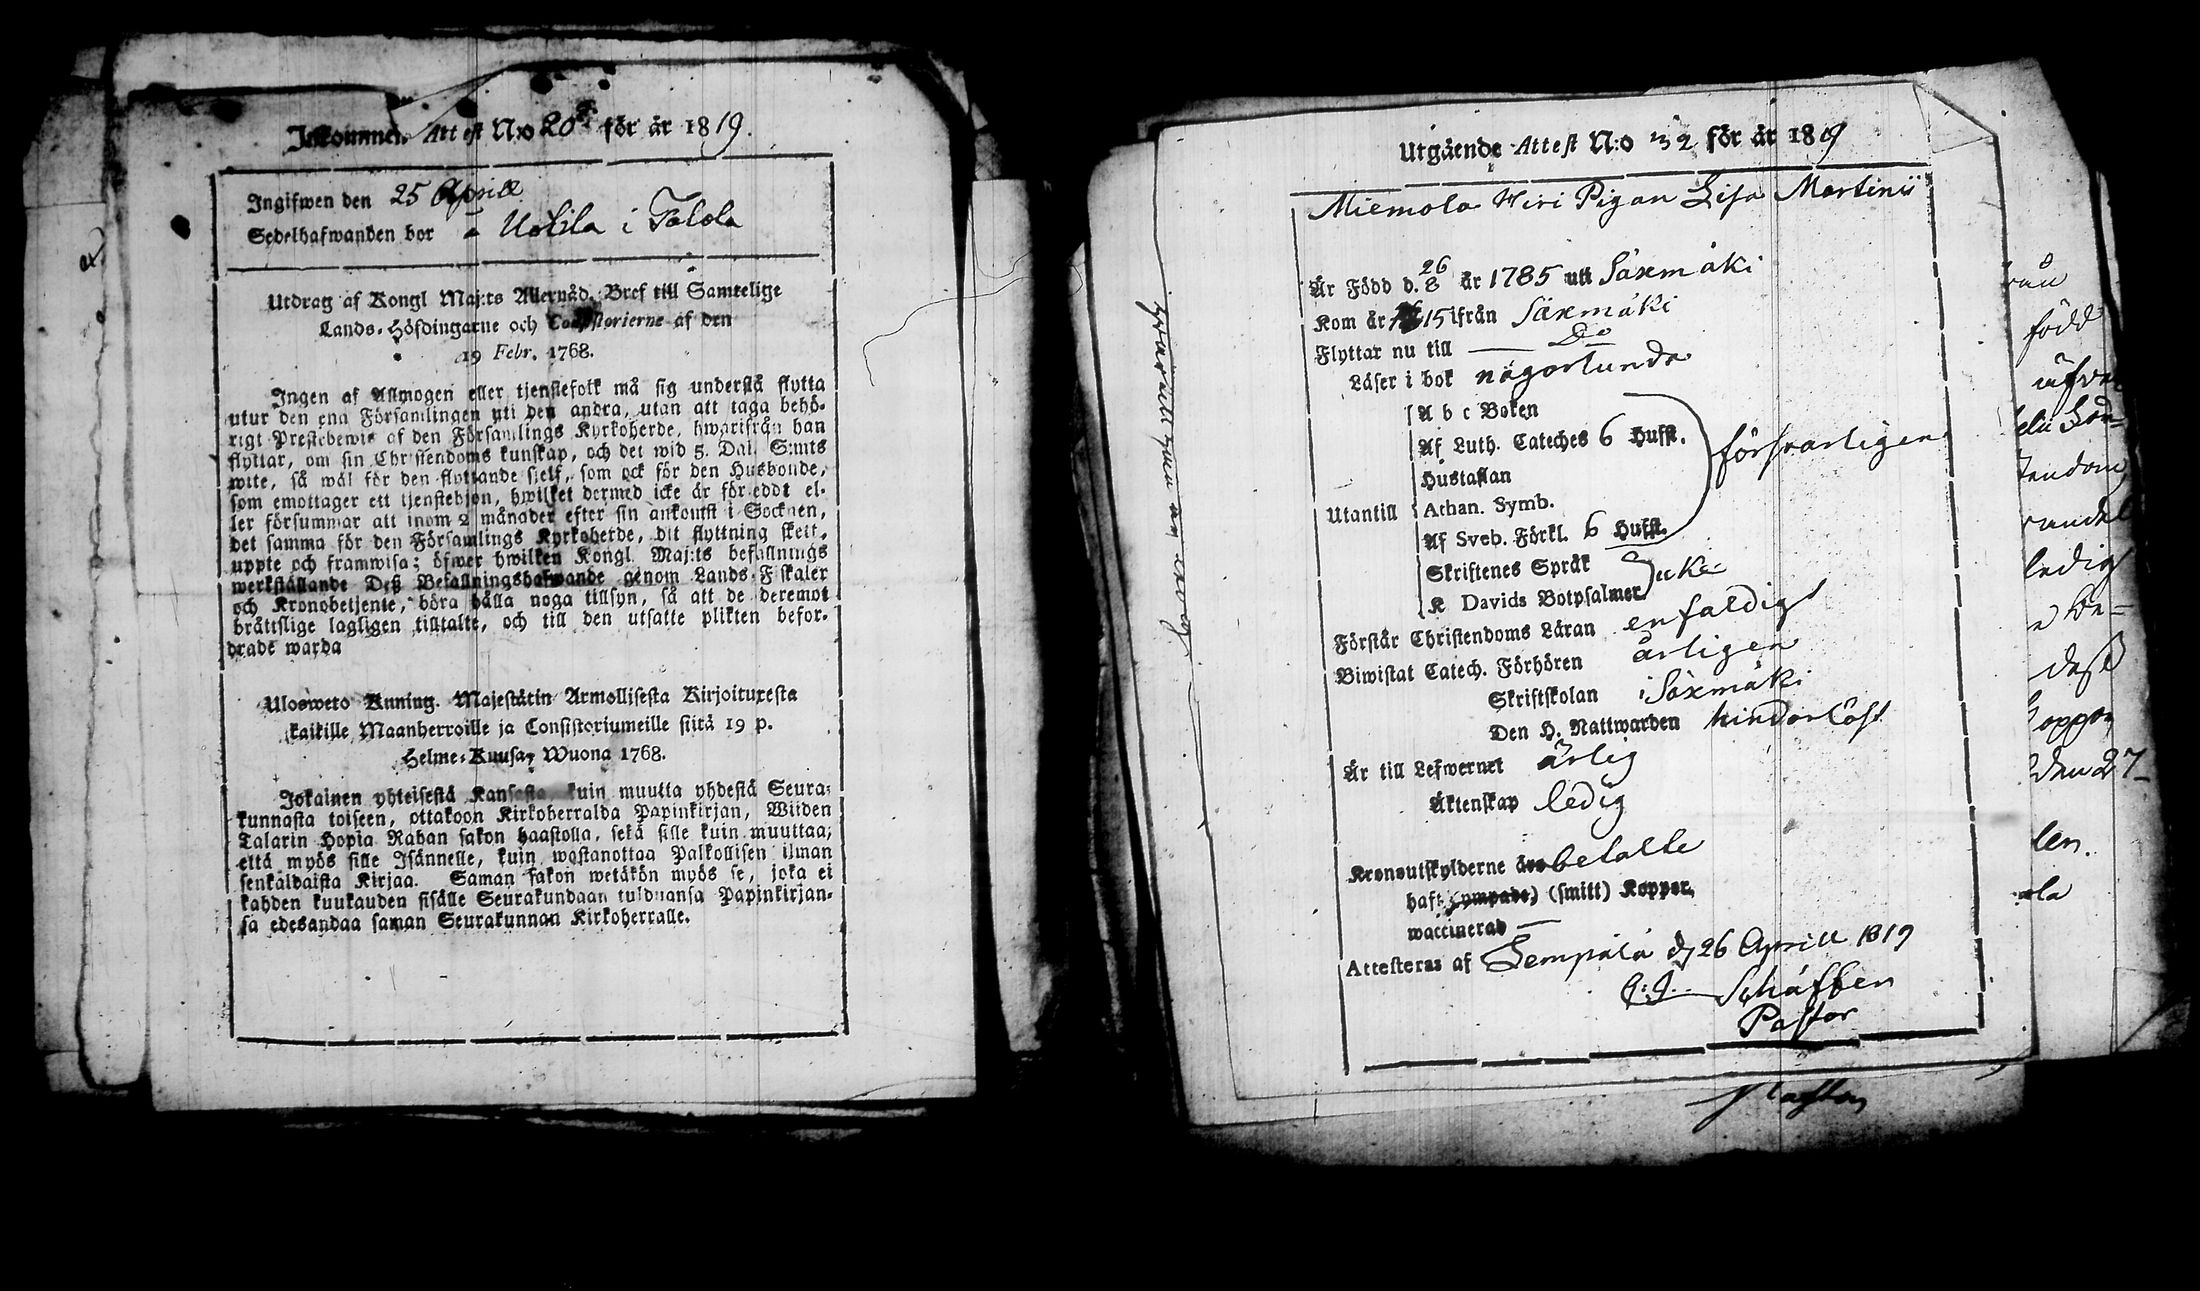 Inkommen Attest N:o 20 för år 1819.
Ingifwen den 25 Aprill
Sedelhafwanden bor Uotila i Talola
Utdrag af Kongl Maj:ts Allernåd. Bref till Samtelige
Lands-Höfdingarne och Consistorierne af den
19 Febr. 1768.
Ingen af Allmogen eller tjenstefolk må sig understå flytta
utur den ena Församlingen uti den andra, utan att taga behö-
rigt Prestebewis af den Församlings Kyrkoherde, hwarifrån han
flyttar, om sin Christendoms kunskap, och det wid 5. Dal. S:mts
wite, så wäl för den flyttande sjelf, som ock för den Husbonde,
som emottager ett tjenstehjon, hwilket dermed icke är föreddt el-
ler försummar att inom 2 månader efter sin ankomst i Socknen,
det samma för den Församlings Kyrkoherde, dit flyttning skett,
uppte och framwisa; öfwer hwilken Kongl. Maj:ts befallnings
werkställande Deß Befallningshafwande genom Lands-Fiskaler
och Kronobetjente, böra hålla noga tillsyn, så att de deremot
bråttslige lagligen tilltalte, och till den utsatte plikten befor-
drade warda
Ulosweto Kuning. Majestätin Armollisesta Kirjoituxesta
kaikille Maanherroille ja Consistoriumeille siitä 19 p.
Helme-Kuusa, Wuona 1768.
Jokainen yhteisestä Kansasta kuin muutta yhdestä Seura-
kunnasta toiseen, ottakoon Kirkoherralda Papinkirjan, Wiiden
Talarin Hopia Rahan sakon haastolla, sekä sille kuin muuttaa;
että myös sille Isännelle, kuin wastanottaa Palkollisen ilman
senkaldaista Kirjaa. Saman sakon wetäkön myös se, joka ei
kahden kuukauden sisälle Seurakundaan tulduansa Papinkirjan-
sa edesandaa saman Seurakunnan Kirkoherralle.
Utgående Attest N:o 32 för år 1819
Miemola Piri Pigan Lisa Martini
Är Född d. 26/8 år 1785 uti Säxmäki
Kom år 15 ifrån Säxmäki
Flyttar nu till — Do
Läser i bok någorlunda
Utantill
A b c Boken
Af Luth. Cateches 6 Hufst.
Hustaflan
Athan. Symb.
Af Sveb. Förkl. 6 Hufst.
försvarligen
Skriftenes Språk
K Davids Botpsalmer
icke
Förstår Christendoms Läran enfaldigt
Biwistat Catech. Förhören årligen
Skriftskolan i Säxmäki
Den H. Nattwarden hinderlöst
Är till Lefwernet ärlig
Äktenskap ledig
Kronoutskylderne äro betalte
haft (ympade) (smitt) Koppor,
waccinerad —
Attesteras af Lempälä d 26 Aprill 1819
Pastor
född
ledig
den 27